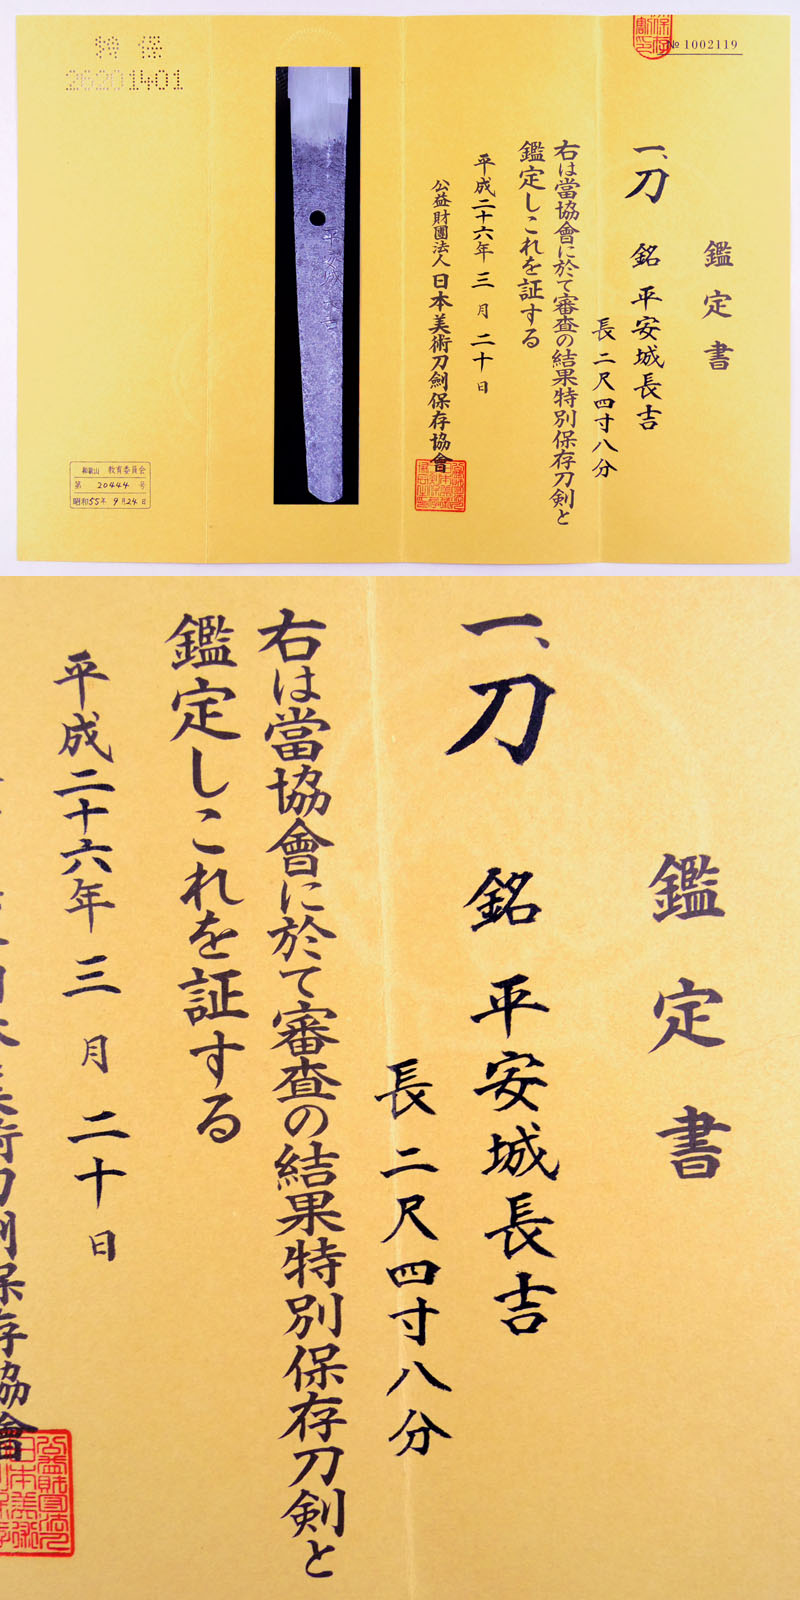 № 1002119
鑑定書
一、刀 銘 平安城長吉
長 二尺四寸八分
右は當協會に於て審査の結果特別保存刀剣と
鑑定しこれを証する
平成二十六年 三月 二十日
公益財團法人 日本美術刀劍保存協會
特 保
26201401
和歌山 教育委員会
第 20444 号
昭和55年 9月24日
平安城長吉
鑑定書
一、刀 銘 平安城長吉
長 二尺四寸八分
右は當協會に於て審査の結果特別保存刀剣と
鑑定しこれを証する
平成二十六年 三月 二十日
日本美術刀劍保存協會